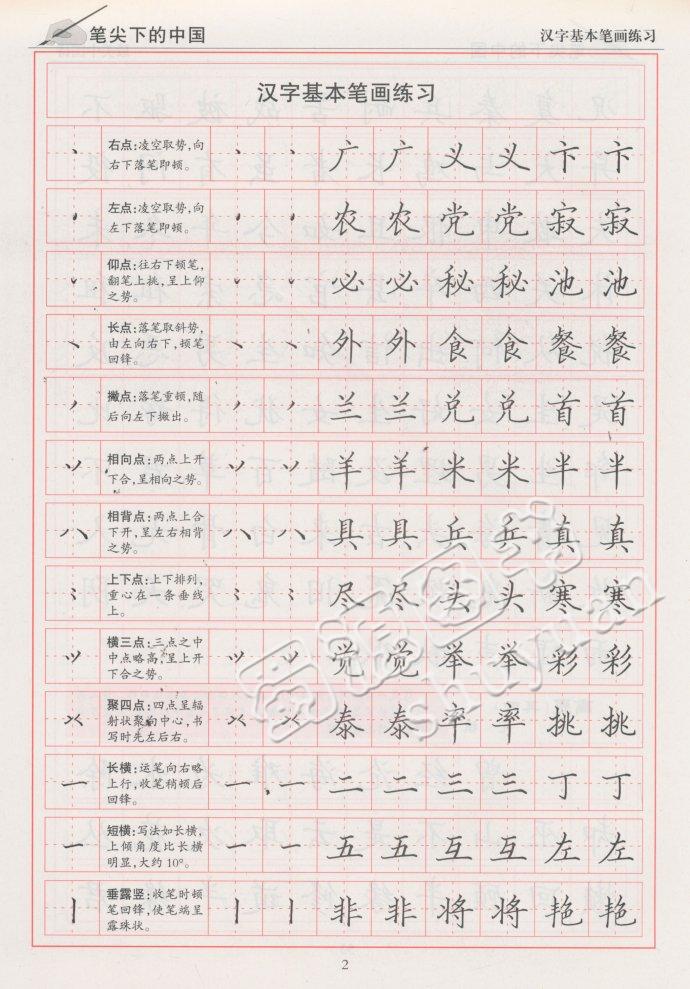 笔尖下的中国
汉字基本笔画练习
汉字基本笔画练习
右点:凌空取势,向
右下落笔即顿。
广 广 义 义 卞 卞
左点:凌空取势,向
左下落笔即顿。
农 农 党 党 寂 寂
仰点:往右下顿笔,
翻笔上挑,呈上仰
之势。
必 必 秘 秘 池 池
长点:落笔取斜势,
由左向右下,顿笔
回锋。
外 外 食 食 餐 餐
撇点:落笔重顿,随
后向左下撇出。
兰 兰 兑 兑 首 首
相向点:两点上开
下合,呈相向之势。
羊 羊 米 米 半 半
相背点:两点上合
下开,呈左右相背
之势。
具 具 兵 兵 真 真
上下点:上下排列,
重心在一条垂线
上。
尽 尽 头 头 寒 寒
横三点:三点之中
中点略高,呈上开
下合之势。
觉 觉 举 举 彩 彩
聚四点:四点呈辐
射状聚向中心,书
写时先左后右。
泰 泰 率 率 挑 挑
长横:运笔向右略
上行,收笔稍顿后
回锋。
一 一 一 二 二 三 三 丁 丁
短横:写法如长横,
上倾角度比长横
明显,大约10°。
五 五 互 互 左 左
垂露竖:收笔时顿
笔回锋,使笔端呈
露珠状。
非 非 将 将 艳 艳
shuyuan
2